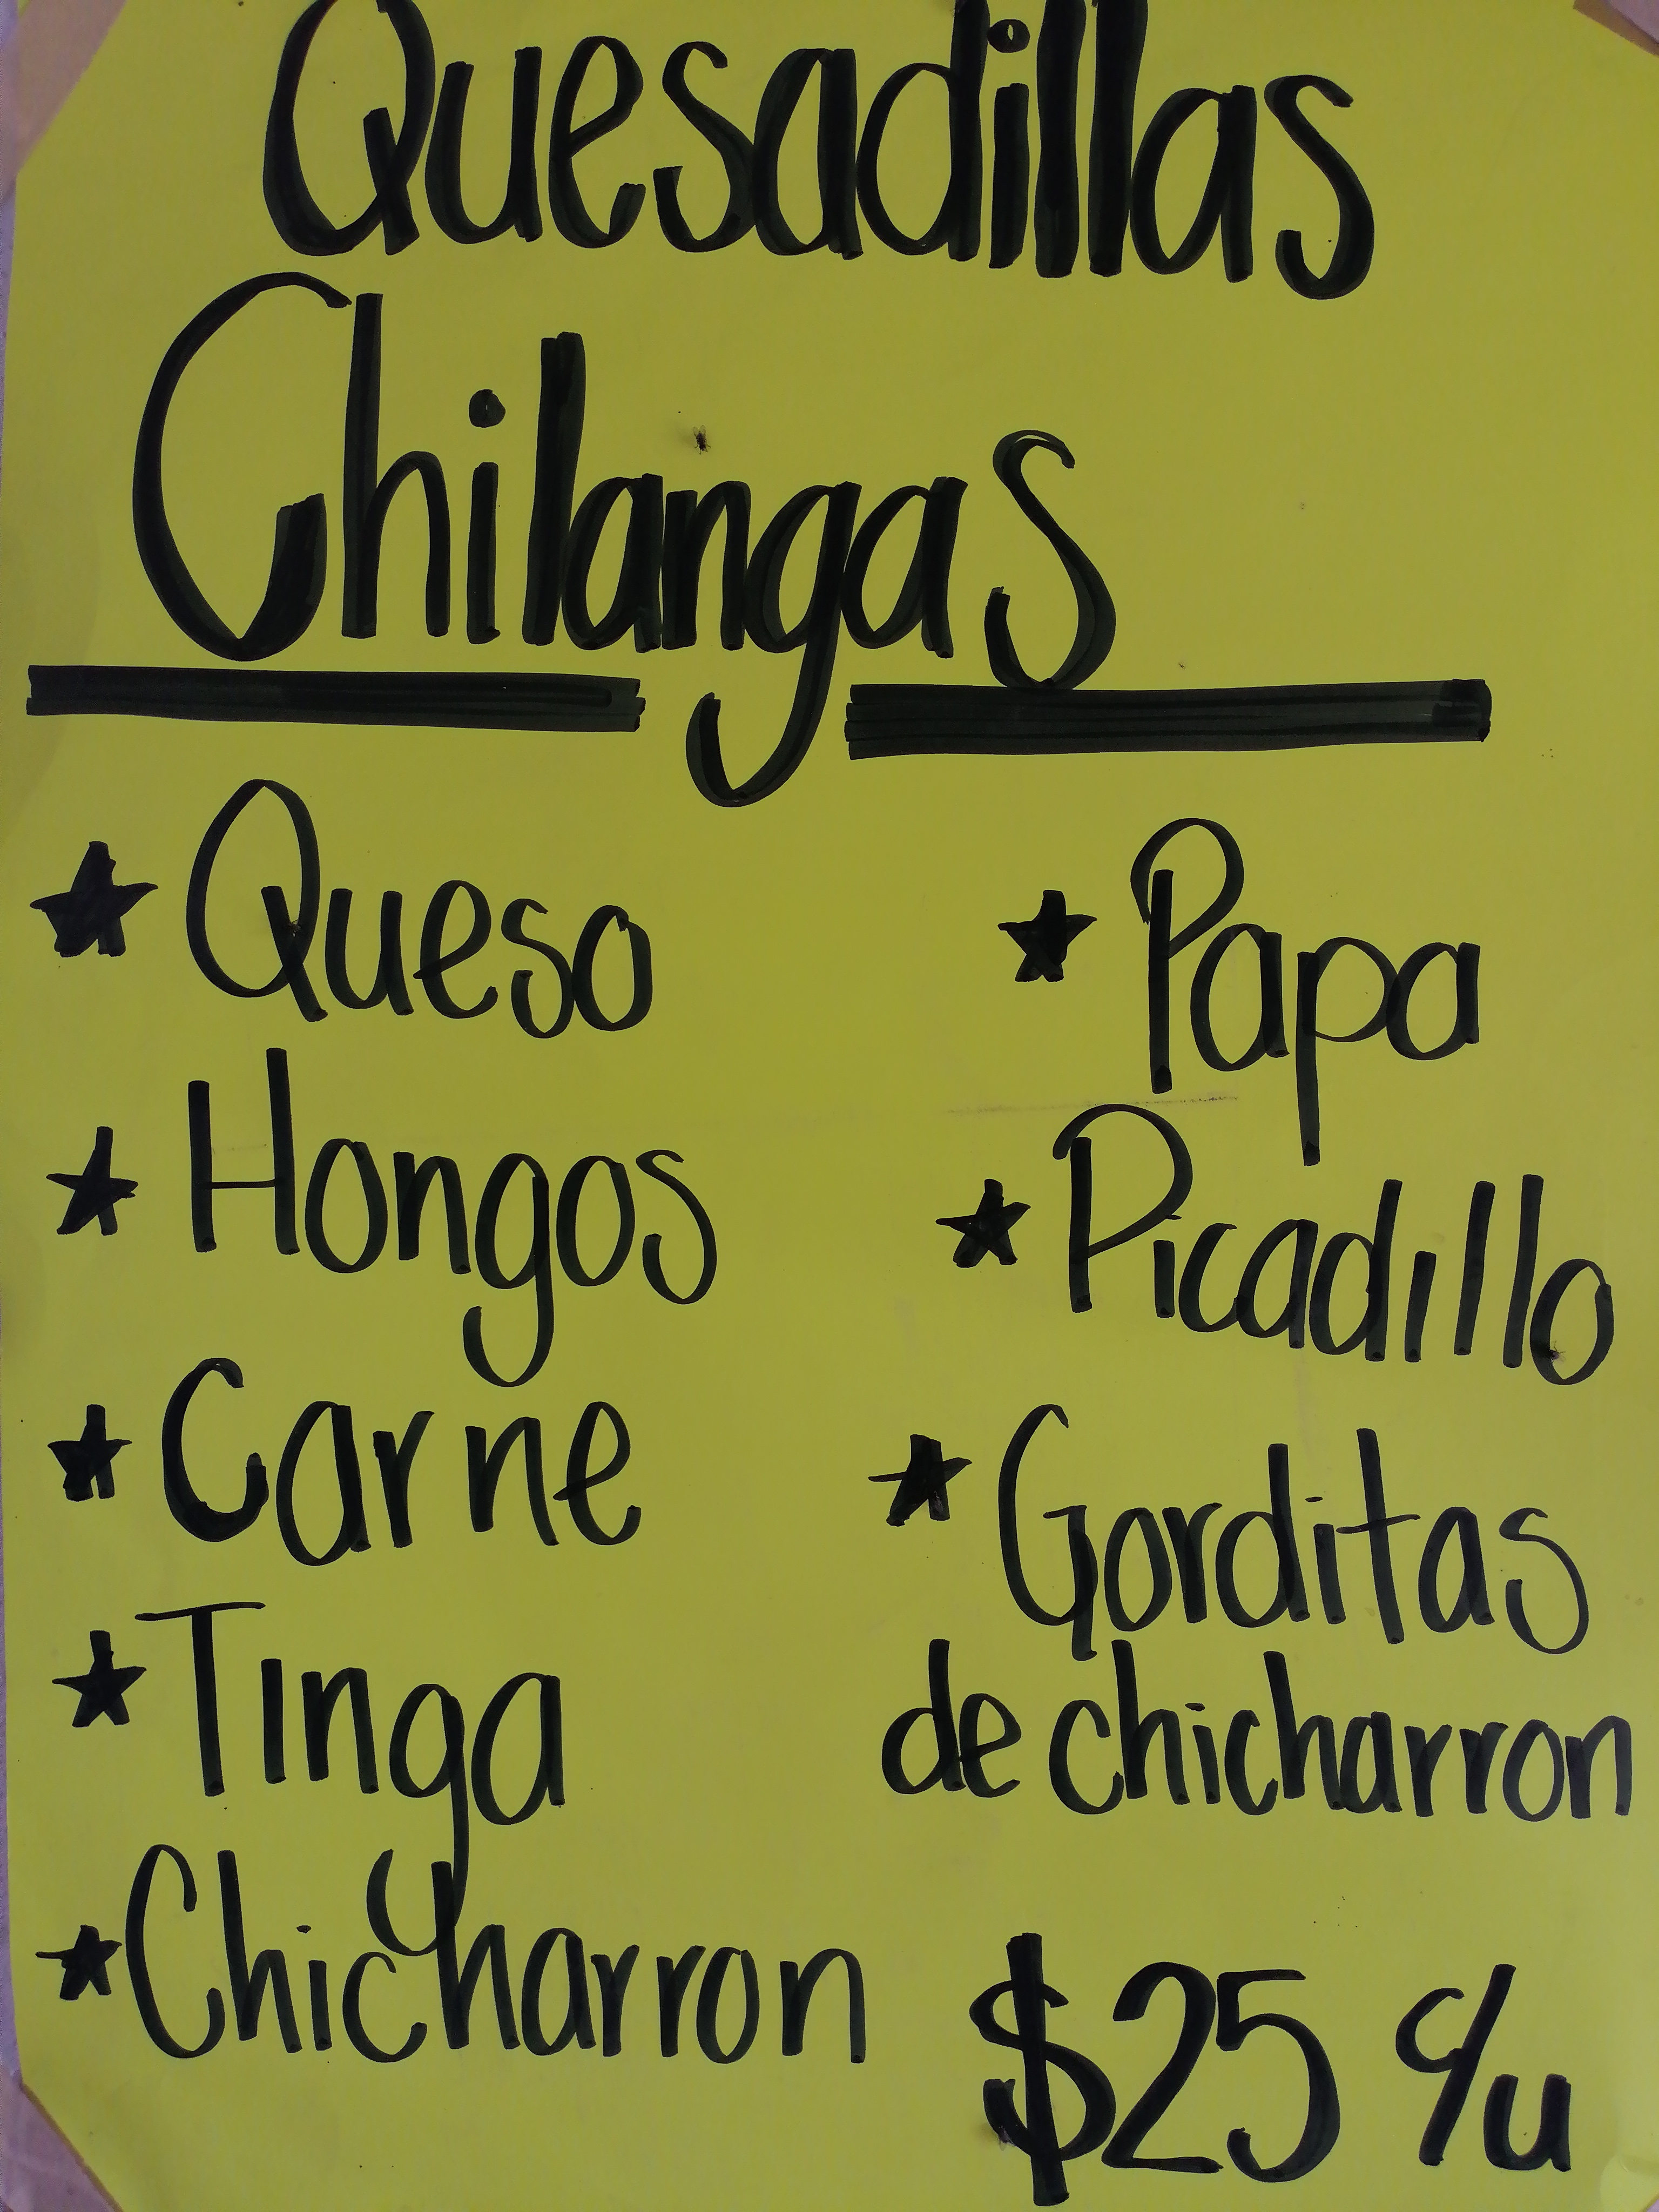 Quesadillas
Chilangas
★ Queso
★ Hongos
★ Carne
★ Tinga
★ Chicharron
★ Papa
★ Picadillo
★ Gorditas
de chicharron
$25 c/u